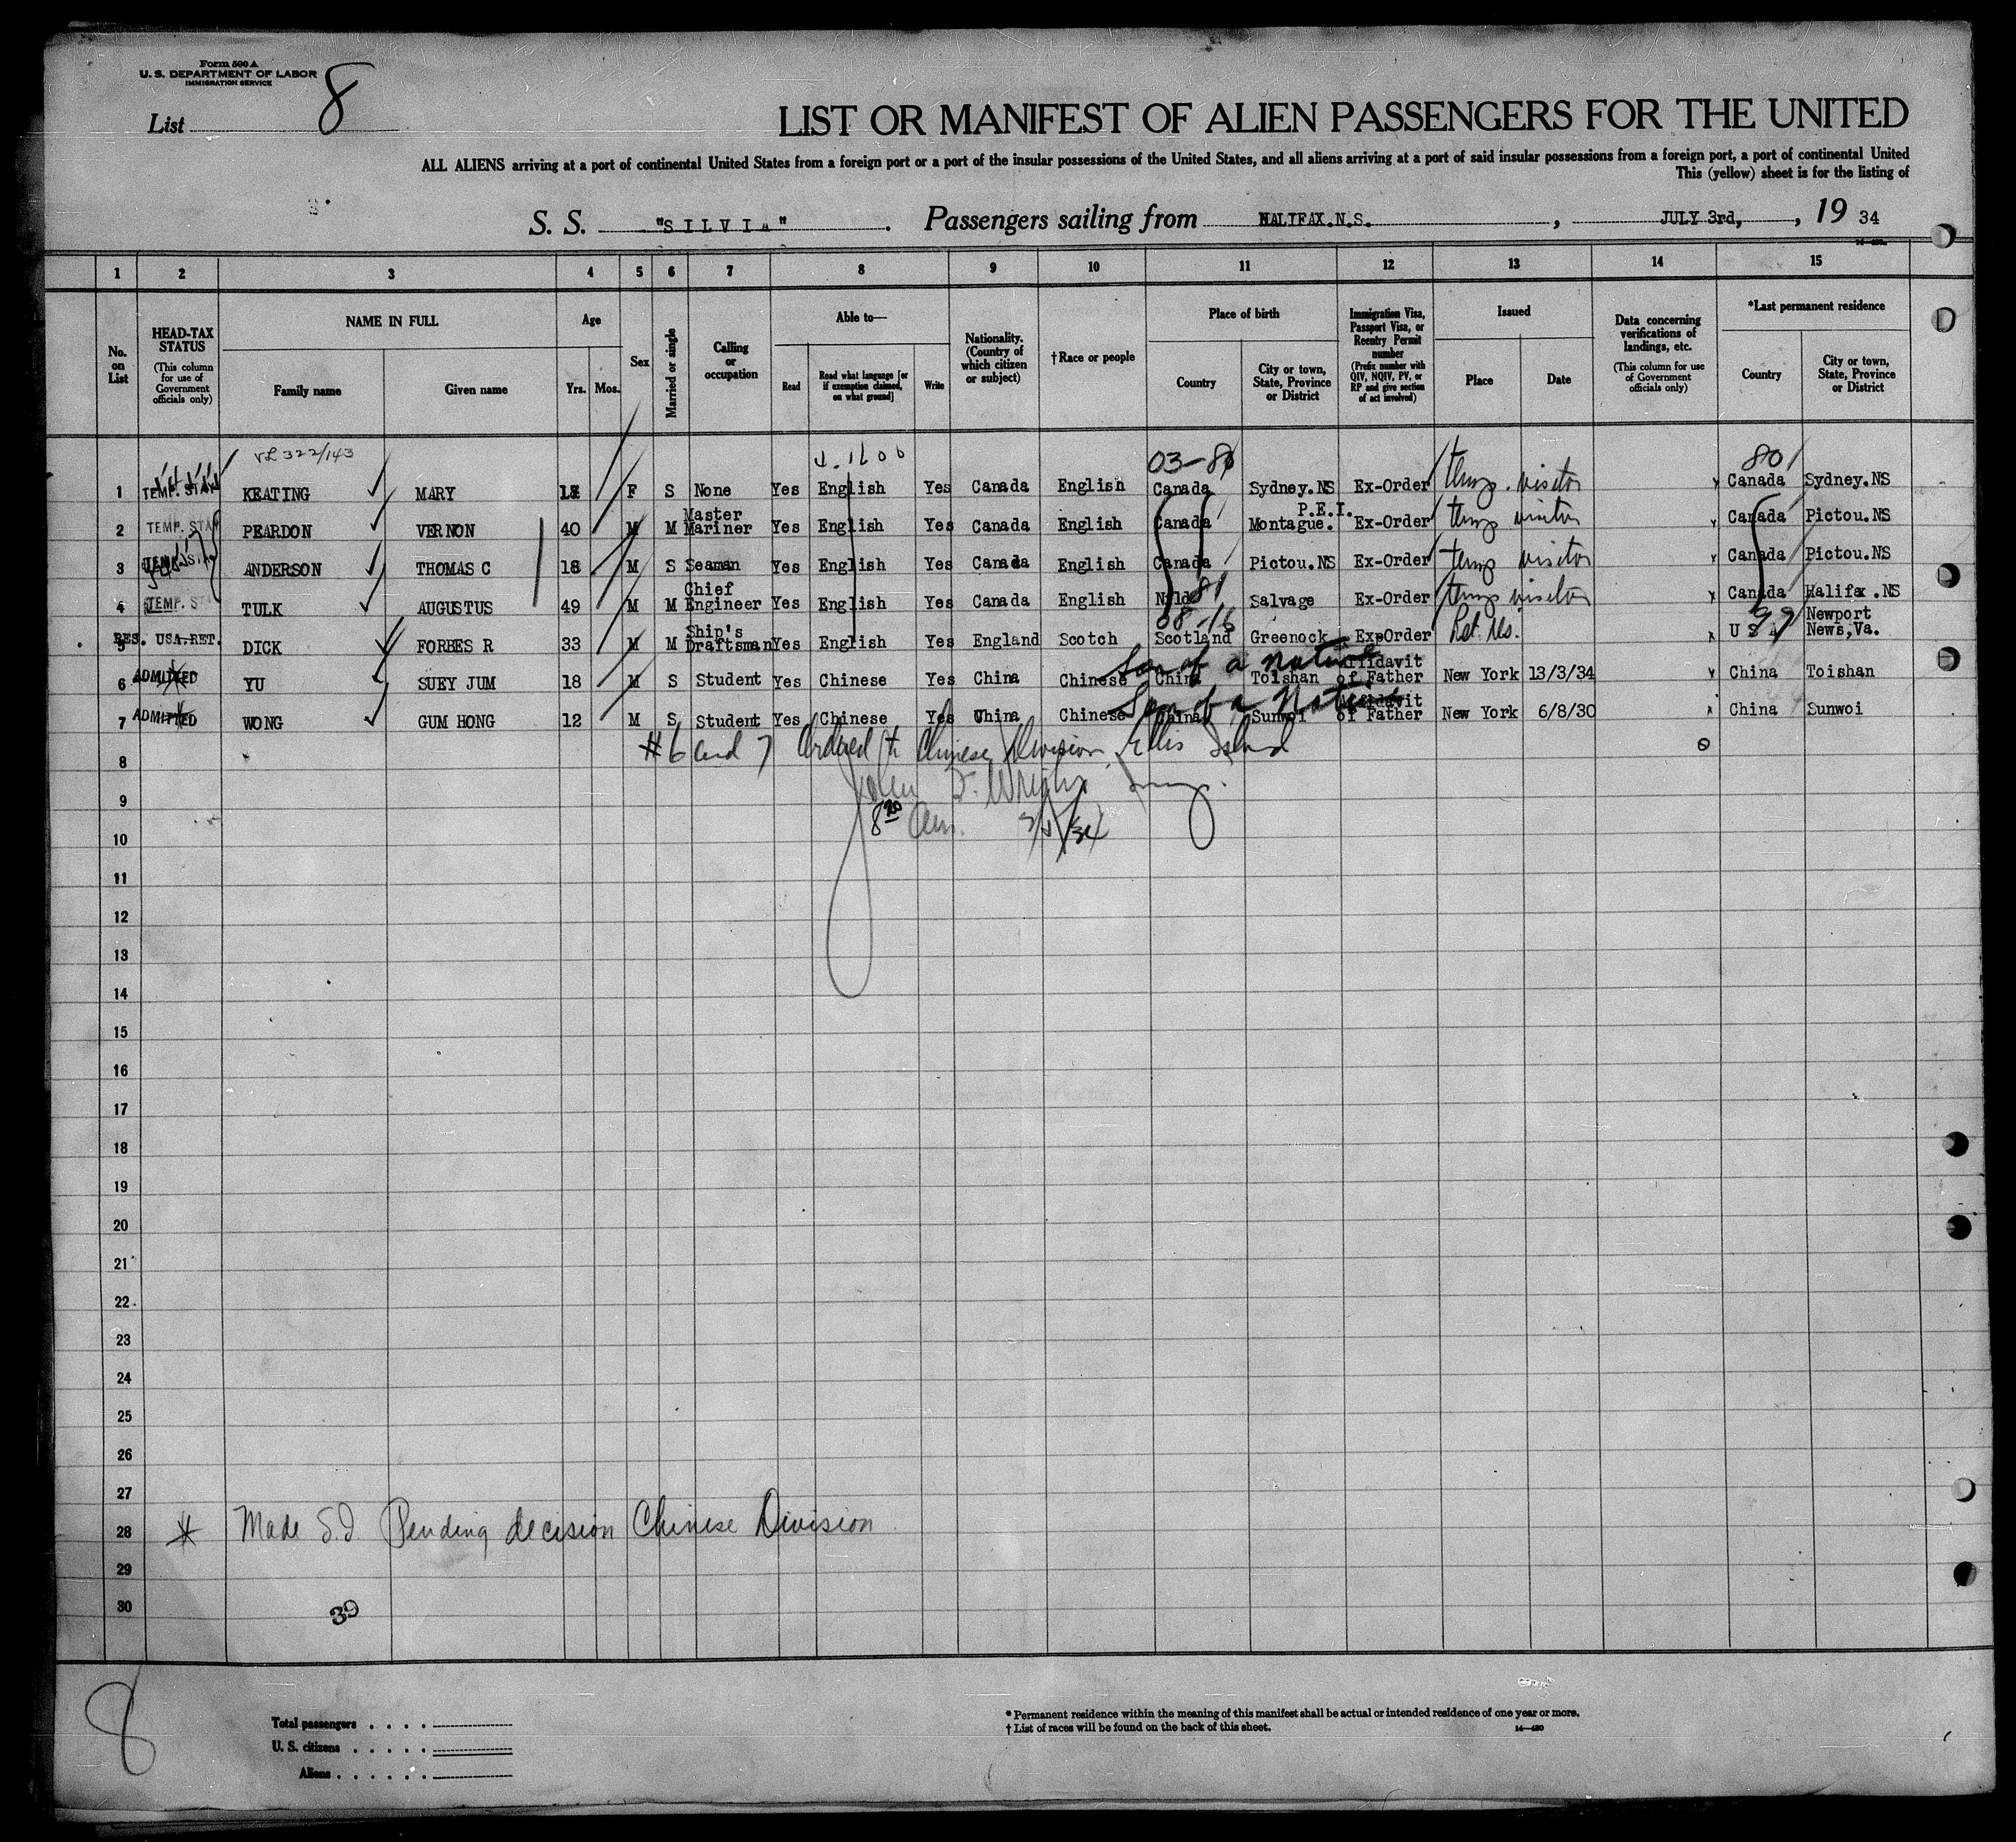 Form 500 A
U. S. DEPARTMENT OF LABOR
IMMIGRATION SERVICE
List 8
LIST OR MANIFEST OF ALIEN PASSENGERS FOR THE UNITED
ALL ALIENS arriving at a port of continental United States from a foreign port or a port of the insular possessions of the United States, and all aliens arriving at a port of said insular possessions from a foreign port, a port of continental United
This (yellow) sheet is for the listing of
S. S. "SILVIA" . Passengers sailing from HALIFAX.N.S. , JULY 3rd, , 19 34
1 2 3 4 5 6 7 8 9 10 11 12 13 14 15
No. on List
HEAD-TAX STATUS
(This column for use of Government officials only)
NAME IN FULL
Family name
Given name
Age
Yrs. Mos.
Sex
Married or single
Calling or occupation
Able to—
Read
Read what language [or if exemption claimed, on what ground]
Write
Nationality. (Country of which citizen or subject)
†Race or people
Place of birth
Country
City or town, State, Province or District
Immigration Visa, Passport Visa, or Reentry Permit number
(Prefix number with QIV, NQIV, PV, or RP and give section of act involved)
Issued
Place
Date
Data concerning verifications of landings, etc.
(This column for use of Government officials only)
*Last permanent residence
Country
City or town, State, Province or District
VL 322/143 03-80 801
1 TEMP. STAY KEATING MARY F S None Yes English Yes Canada English Canada Sydney.NS Ex-Order temp. visitor Canada Sydney.NS
2 TEMP. STAY PEARDON VERNON 40 M M Master Mariner Yes English Yes Canada English Canada Montague. P.E.I. Ex-Order temp visitor Canada Pictou.NS
3 TEMP. STAY ANDERSON THOMAS C 18 M S Seaman Yes English Yes Canada English Canada Pictou.NS Ex-Order temp visitor Canada Pictou.NS
4 TEMP. STAY TULK AUGUSTUS 49 M M Chief Engineer Yes English Yes Canada English Nfld 81 Salvage Ex-Order temp visitor Canada Halifax .NS
08-16 99
5 RES. USA.RET. DICK FORBES R 33 M M Ship's Draftsman Yes English Yes England Scotch Scotland Greenock Ex-Order Ret. Res. U S A Newport News,Va.
6 ADMITTED YU SUEY JUM 18 M S Student Yes Chinese Yes China Chinese Son of a native China Toishan Affidavit of Father New York 13/3/34 China Toishan
7 ADMITTED WONG GUM HONG 12 M S Student Yes Chinese Yes China Chinese Son of a Native China Sunwoi Affidavit of Father New York 6/8/30 China Sunwoi
#6 and 7 Ordered to Chinese Division, Ellis Island
8
John F. Wright
9
8 20 Am. 7/5/34
10
11
12
13
14
15
16
17
18
19
20
21
22
23
24
25
26
27
28 * Made S.I. Pending decision Chinese Division
29
30
39
8
Total passengers
U. S. citizens
Aliens
* Permanent residence within the meaning of this manifest shall be actual or intended residence of one year or more.
† List of races will be found on the back of this sheet.
14—480